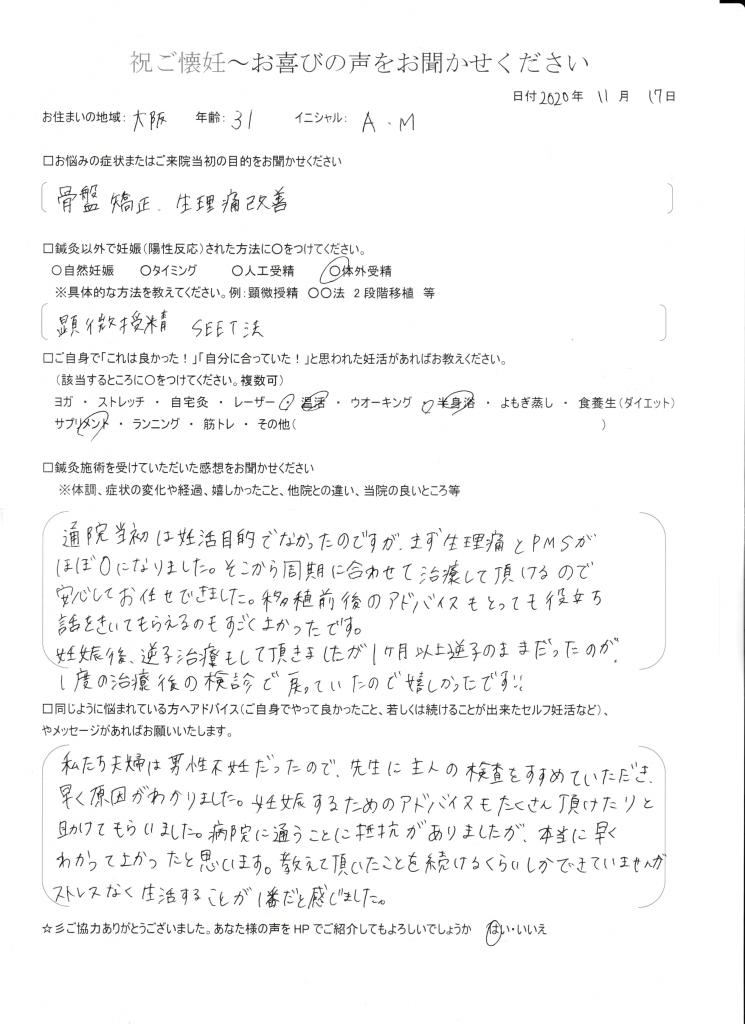 祝ご懐妊～お喜びの声をお聞かせください
日付2020年 11月 17日
お住まいの地域: 大阪 年齢: 31 イニシャル: A.M
□お悩みの症状またはご来院当初の目的をお聞かせください
骨盤矯正、生理痛改善
□鍼灸以外で妊娠(陽性反応)された方法に〇をつけてください。
〇自然妊娠 〇タイミング 〇人工受精 〇体外受精
※具体的な方法を教えてください。例:顕微授精 〇〇法 2段階移植 等
顕微授精 SEET法
□ご自身で「これは良かった!」「自分に合っていた!」と思われた妊活があればお教えください。
(該当するところに〇をつけてください。複数可)
ヨガ ・ ストレッチ ・ 自宅灸 ・ レーザー ・ 温活 ・ ウオーキング ・ 半身浴 ・ よもぎ蒸し ・ 食養生(ダイエット)
サプリメント ・ ランニング ・ 筋トレ ・ その他( )
□鍼灸施術を受けていただいた感想をお聞かせください
※体調、症状の変化や経過、嬉しかったこと、他院との違い、当院の良いところ等
通院当初は妊活目的でなかったのですが、まず生理痛とPMSが
ほぼ0になりました。そこから周期に合わせて治療して頂けるので
安心してお任せできました。移植前後のアドバイスもとっても役立ち
話をきいてもらえるのもすごくよかったです。
妊娠後、逆子治療もして頂きましたが1ヶ月以上逆子のままだったのが、
1度の治療後の検診で戻っていたので嬉しかったです!!
□同じように悩まれている方へアドバイス(ご自身でやって良かったこと、若しくは続けることが出来たセルフ妊活など)、
やメッセージがあればお願いいたします。
私たち夫婦は男性不妊だったので、先生に主人の検査をすすめていただき、
早く原因がわかりました。妊娠するためのアドバイスもたくさん頂けたりと
助けてもらいました。病院に通うことに抵抗がありましたが、本当に早く
わかって良かったと思います。教えて頂いたことを続けるくらいしかできていませんが
ストレスなく生活することが1番だと感じました。
☆彡ご協力ありがとうございました。あなた様の声をHPでご紹介してもよろしいでしょうか はい・いいえ